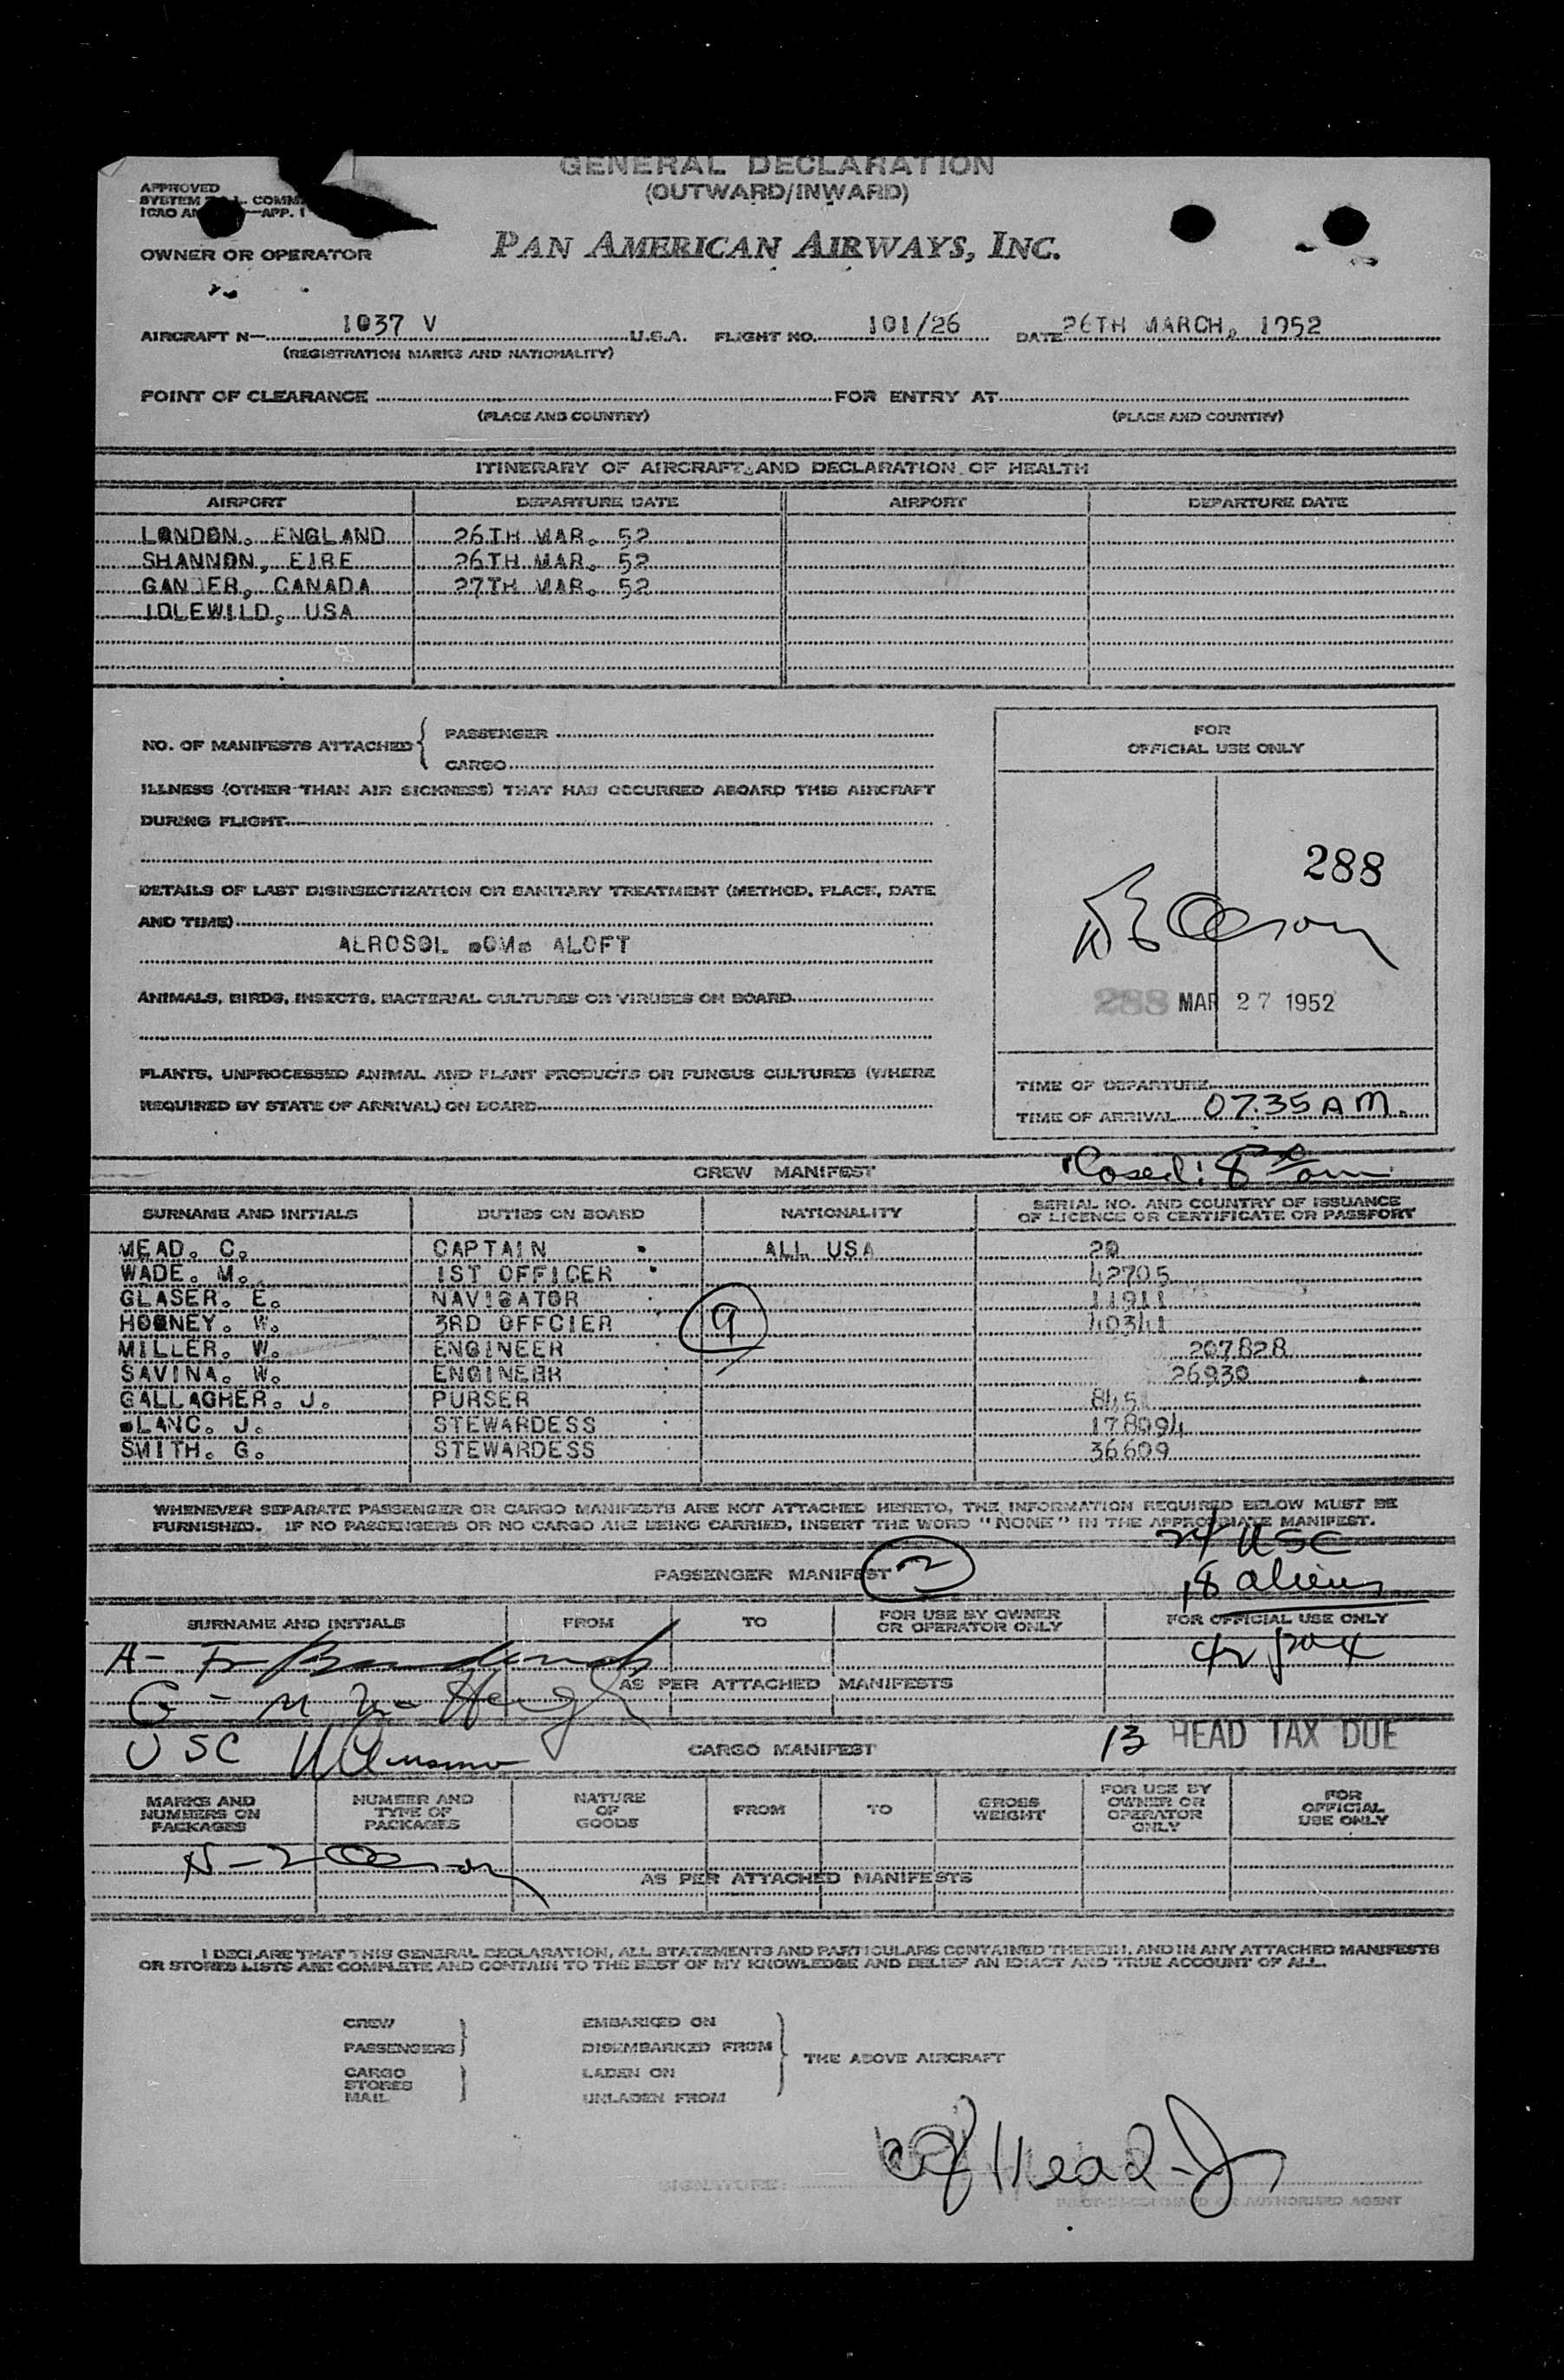 GENERAL DECLARATION
(OUTWARD/INWARD)
APPROVED
SYSTEM COMM
ICAO AN —APP. 1
OWNER OR OPERATOR PAN AMERICAN AIRWAYS, INC.
AIRCRAFT N— 1037 V U.S.A. FLIGHT NO. 101/26 DATE 26TH MARCH, 1952
(REGISTRATION MARKS AND NATIONALITY)
POINT OF CLEARANCE FOR ENTRY AT
(PLACE AND COUNTRY) (PLACE AND COUNTRY)
ITINERARY OF AIRCRAFT AND DECLARATION OF HEALTH
AIRPORT DEPARTURE DATE AIRPORT DEPARTURE DATE
LONDON. ENGLAND 26TH MAR. 52
SHANNON, EIRE 26TH MAR. 52
GANDER, CANADA 27TH MAR. 52
IDLEWILD, USA
NO. OF MANIFESTS ATTACHED { PASSENGER
CARGO
ILLNESS (OTHER THAN AIR SICKNESS) THAT HAS OCCURRED ABOARD THIS AIRCRAFT
DURING FLIGHT
DETAILS OF LAST DISINSECTIZATION OR SANITARY TREATMENT (METHOD, PLACE, DATE
AND TIME)
AEROSOL BOMB ALOFT
ANIMALS, BIRDS, INSECTS, BACTERIAL CULTURES OR VIRUSES ON BOARD
PLANTS, UNPROCESSED ANIMAL AND PLANT PRODUCTS OR FUNGUS CULTURES (WHERE
REQUIRED BY STATE OF ARRIVAL) ON BOARD
FOR
OFFICIAL USE ONLY
288
288 MAR 27 1952
TIME OF DEPARTURE
TIME OF ARRIVAL 07.35 AM.
Closed: 8 am
CREW MANIFEST
SURNAME AND INITIALS DUTIES ON BOARD NATIONALITY SERIAL NO. AND COUNTRY OF ISSUANCE
OF LICENCE OR CERTIFICATE OR PASSPORT
MEAD. C. CAPTAIN ALL USA 20
WADE. M. 1ST OFFICER 42705
GLASER. E. NAVIGATOR 11911
HOONEY. W. 3RD OFFCIER 9 40341
MILLER. W. ENGINEER 207828
SAVINA. W. ENGINEER 26930
GALLAGHER. J. PURSER 845
BLANC. J. STEWARDESS 178094
SMITH. G. STEWARDESS 36609
WHENEVER SEPARATE PASSENGER OR CARGO MANIFESTS ARE NOT ATTACHED HERETO, THE INFORMATION REQUIRED BELOW MUST BE
FURNISHED. IF NO PASSENGERS OR NO CARGO ARE BEING CARRIED, INSERT THE WORD "NONE" IN THE APPROPRIATE MANIFEST.
24 USC
PASSENGER MANIFEST 2 18 aliens
SURNAME AND INITIALS FROM TO FOR USE BY OWNER
OR OPERATOR ONLY FOR OFFICIAL USE ONLY
A - 42 pax
AS PER ATTACHED MANIFESTS
G -
USC CARGO MANIFEST 13 HEAD TAX DUE
MARKS AND
NUMBERS ON
PACKAGES NUMBER AND
TYPE OF
PACKAGES NATURE
OF
GOODS FROM TO GROSS
WEIGHT FOR USE BY
OWNER OR
OPERATOR
ONLY FOR
OFFICIAL
USE ONLY
AS PER ATTACHED MANIFESTS
I DECLARE THAT THIS GENERAL DECLARATION, ALL STATEMENTS AND PARTICULARS CONTAINED THEREIN, AND IN ANY ATTACHED MANIFESTS
OR STORES LISTS ARE COMPLETE AND CONTAIN TO THE BEST OF MY KNOWLEDGE AND BELIEF AN EXACT AND TRUE ACCOUNT OF ALL.
CREW EMBARKED ON
PASSENGERS DISEMBARKED FROM
THE ABOVE AIRCRAFT
CARGO LADEN ON
STORES
MAIL UNLADEN FROM
SIGNATURE:
PILOT-IN-COMMAND OR AUTHORISED AGENT